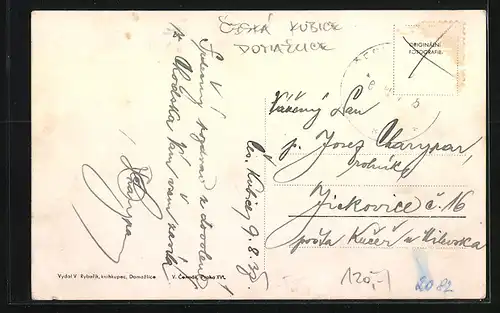 ČESKÁ KUBICE
DOMAŽLICE
ORIGINÁLNÍ
FOTOGRAFIE.
Srdečný pozdrav z dovolené
z Chodska Vám všem zasílá
Čes. Kubice, 9.8.35.
Vážený Pan
p. Josef Charypar,
rolník,
Jickovice č. 16
pošta Kučeř u Milevska
120,-
2082
Vydal V. Rybařík, knihkupec, Domažlice
V. Čermák, Praha XVI.